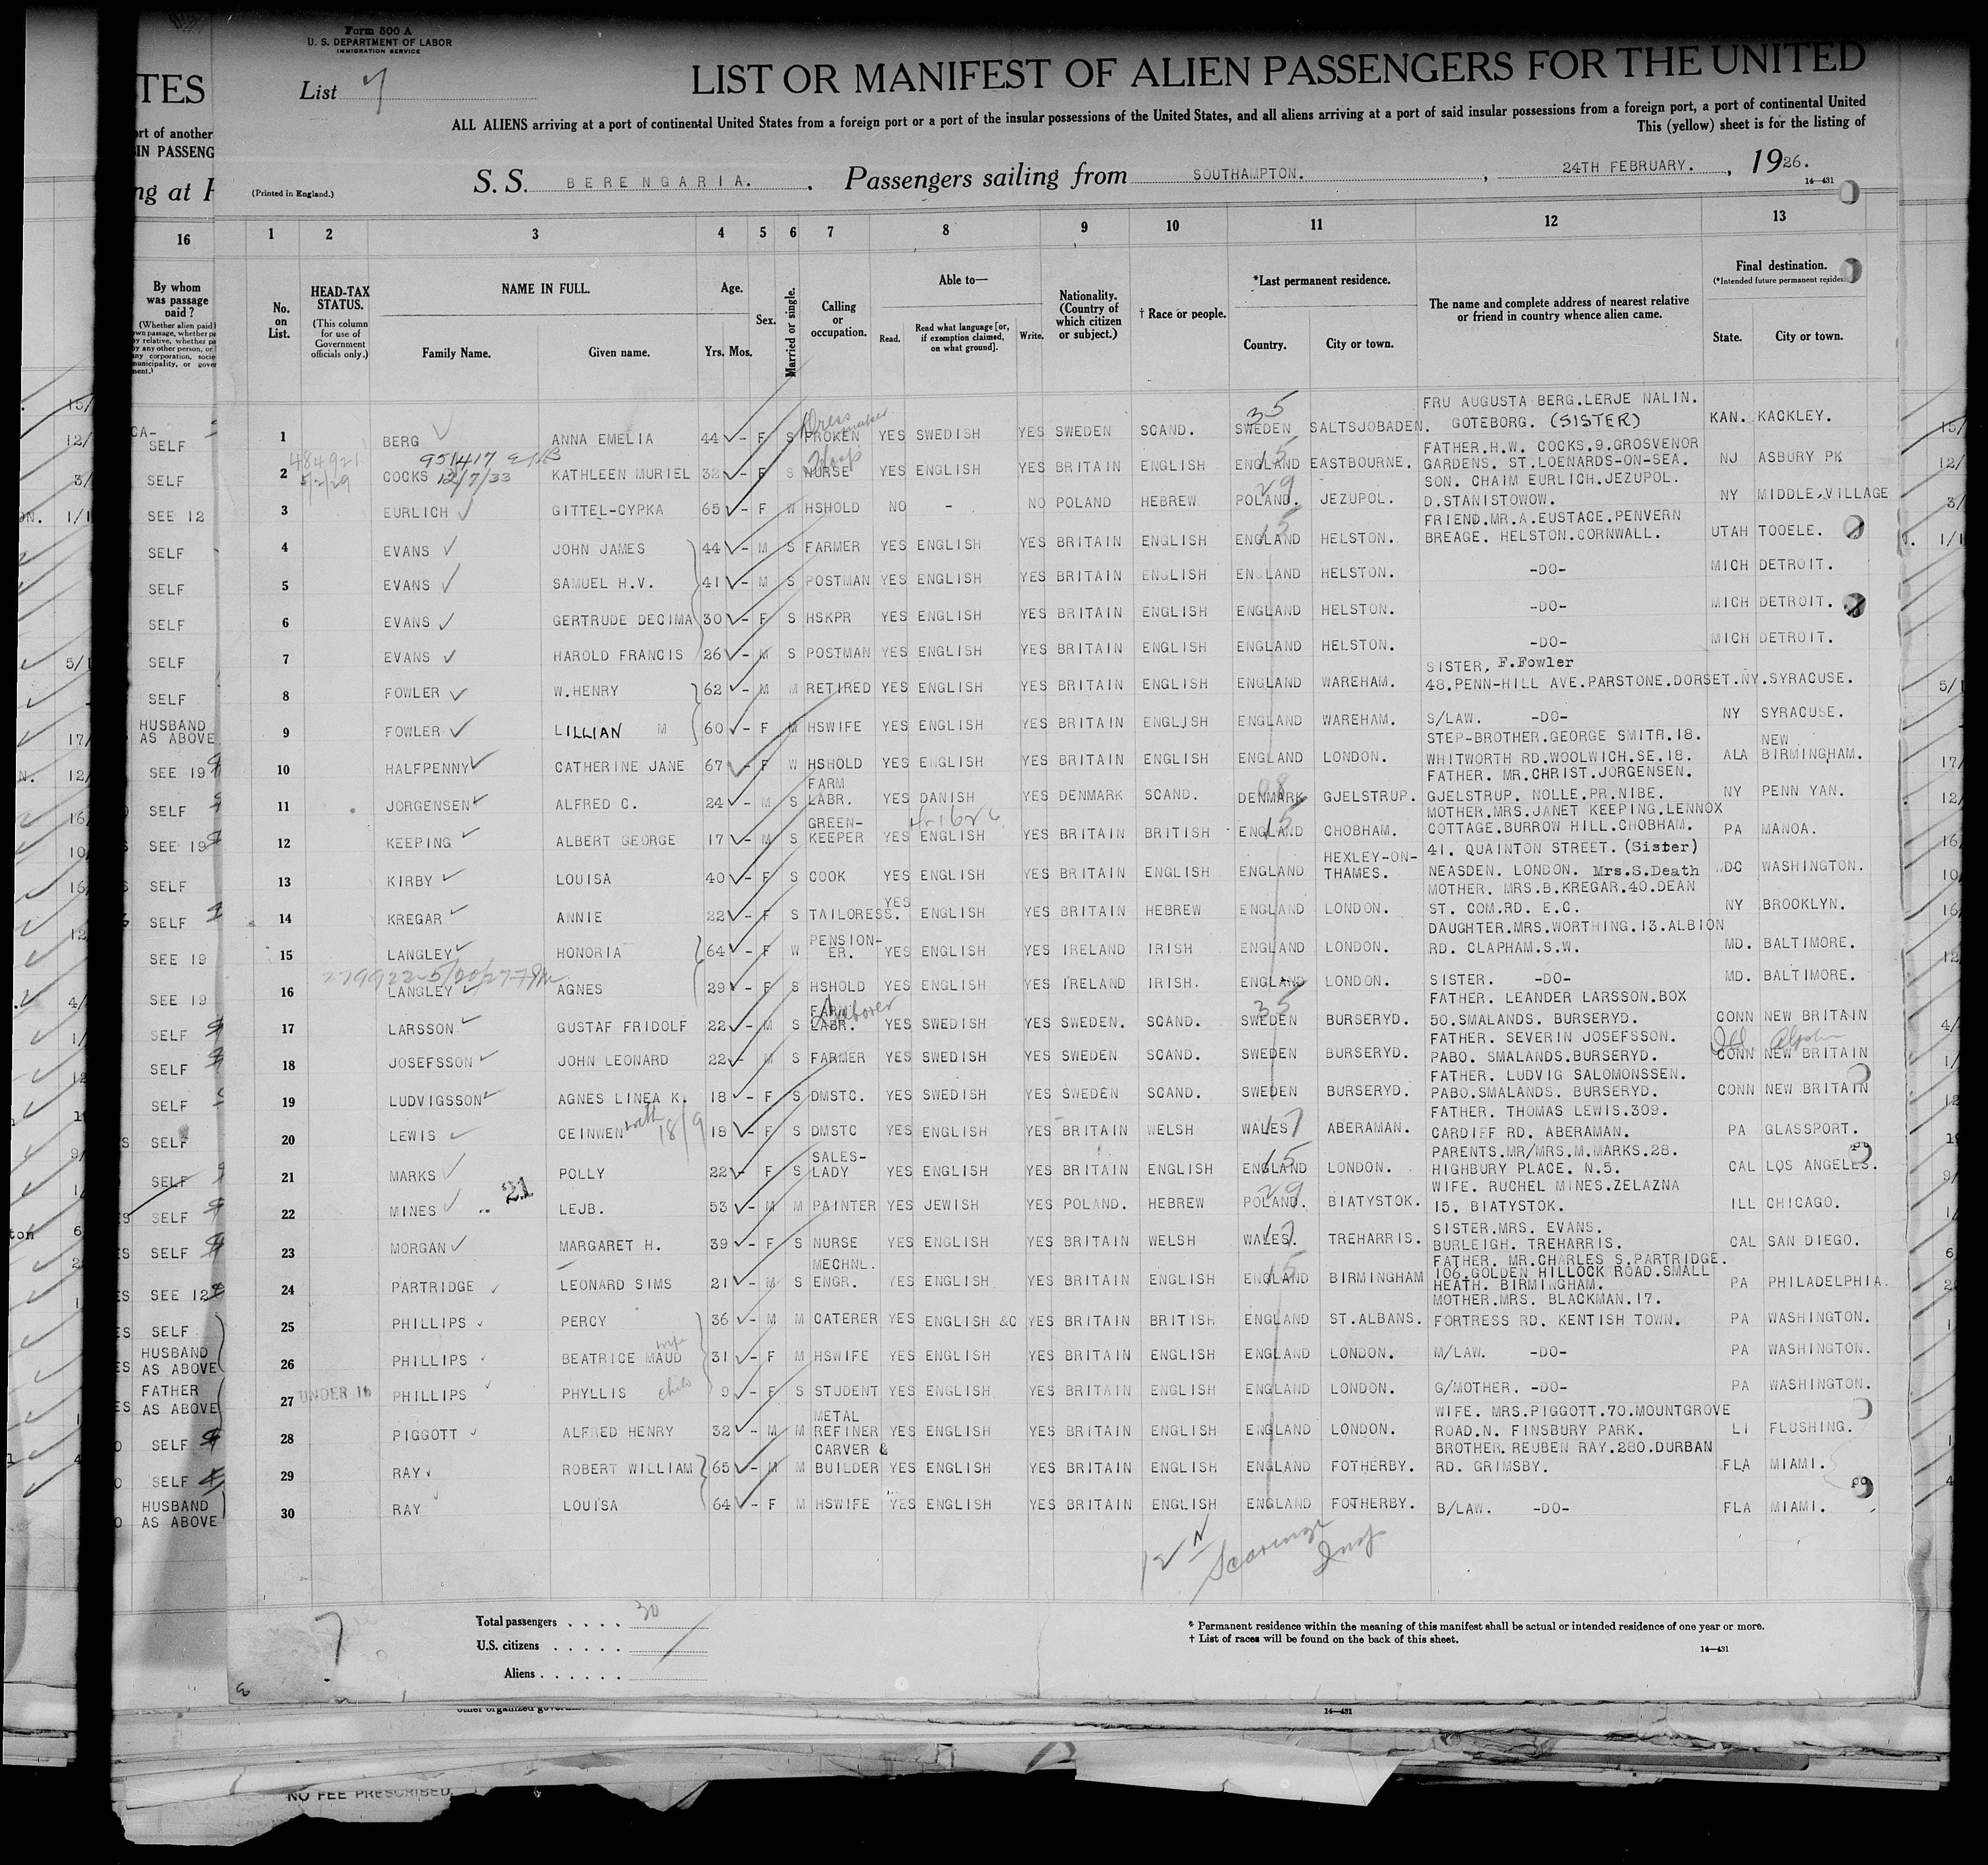 Form 500 A
U. S. DEPARTMENT OF LABOR
IMMIGRATION SERVICE
List 7
LIST OR MANIFEST OF ALIEN PASSENGERS FOR THE UNITED
ALL ALIENS arriving at a port of continental United States from a foreign port or a port of the insular possessions of the United States, and all aliens arriving at a port of said insular possessions from a foreign port, a port of continental United
This (yellow) sheet is for the listing of
(Printed in England.)
S. S. BERENGARIA. Passengers sailing from SOUTHAMPTON. , 24TH FEBRUARY. , 1926.
14—431
TES
ort of another
IN PASSENG
ng at
16 1 2 3 4 5 6 7 8 9 10 11 12 13
By whom was passage paid?
No. on List.
HEAD-TAX STATUS.
(This column for use of Government officials only.)
NAME IN FULL.
Family Name. Given name.
Age.
Yrs. Mos.
Sex.
Married or single.
Calling or occupation.
Able to—
Read. Read what language [or, if exemption claimed, on what ground]. Write.
Nationality. (Country of which citizen or subject.)
† Race or people.
*Last permanent residence.
Country. City or town.
The name and complete address of nearest relative or friend in country whence alien came.
Final destination.
(*Intended future permanent residen
State. City or town.
SELF 1 BERG ANNA EMELIA 44 - F S PROKEN Dressmaker YES SWEDISH YES SWEDEN SCAND. SWEDEN 35 SALTSJOBADEN. FRU AUGUSTA BERG.LERJE NALIN. GOTEBORG. (SISTER) KAN. KACKLEY.
484921 5/2/29 951417 12/7/33
SELF 2 COCKS KATHLEEN MURIEL 32 - F S NURSE YES ENGLISH YES BRITAIN ENGLISH ENGLAND 15 EASTBOURNE. FATHER.H.W. COCKS.9.GROSVENOR GARDENS. ST.LOENARDS-ON-SEA. NJ ASBURY PK
SEE 12 3 EURLICH GITTEL-CYPKA 65 - F W HSHOLD NO - NO POLAND HEBREW POLAND. 29 JEZUPOL. SON. CHAIM EURLICH.JEZUPOL. D.STANISTOWOW. NY MIDDLE.VILLAGE
SELF 4 EVANS JOHN JAMES 44 - M S FARMER YES ENGLISH YES BRITAIN ENGLISH ENGLAND 15 HELSTON. FRIEND.MR.A.EUSTACE.PENVERN BREAGE. HELSTON.CORNWALL. UTAH TOOELE.
SELF 5 EVANS SAMUEL H.V. 41 - M S POSTMAN YES ENGLISH YES BRITAIN ENGLISH ENGLAND HELSTON. -DO- MICH DETROIT.
SELF 6 EVANS GERTRUDE DECIMA 30 - F S HSKPR YES ENGLISH YES BRITAIN ENGLISH ENGLAND HELSTON. -DO- MICH DETROIT.
SELF 7 EVANS HAROLD FRANCIS 26 - M S POSTMAN YES ENGLISH YES BRITAIN ENGLISH ENGLAND HELSTON. -DO- MICH DETROIT.
SELF 8 FOWLER W.HENRY 62 - M M RETIRED YES ENGLISH YES BRITAIN ENGLISH ENGLAND WAREHAM. SISTER. F.Fowler 48.PENN-HILL AVE.PARSTONE.DORSET. NY. SYRACUSE.
HUSBAND AS ABOVE 9 FOWLER LILLIAN M 60 - F M HSWIFE YES ENGLISH YES BRITAIN ENGLISH ENGLAND WAREHAM. S/LAW. -DO- NY SYRACUSE.
SEE 19 10 HALFPENNY CATHERINE JANE 67 - F W HSHOLD YES ENGLISH YES BRITAIN ENGLISH ENGLAND LONDON. STEP-BROTHER.GEORGE SMITH.18. WHITWORTH RD.WOOLWICH.SE.18. ALA NEW BIRMINGHAM.
SELF 11 JORGENSEN ALFRED C. 24 - M S FARM LABR. YES DANISH YES DENMARK SCAND. DENMARK 08 GJELSTRUP. FATHER. MR.CHRIST.JORGENSEN. GJELSTRUP. NOLLE.PR.NIBE. NY PENN YAN.
SEE 19 12 KEEPING ALBERT GEORGE 17 - M S GREEN-KEEPER YES ENGLISH YES BRITAIN BRITISH ENGLAND 15 CHOBHAM. MOTHER.MRS.JANET KEEPING.LENNOX COTTAGE.BURROW HILL.CHOBHAM. PA MANOA.
SELF 13 KIRBY LOUISA 40 - F S COOK YES ENGLISH YES BRITAIN ENGLISH ENGLAND HEXLEY-ON-THAMES. 41. QUAINTON STREET. (Sister) NEASDEN. LONDON. Mrs.S.Death DC WASHINGTON.
SELF 14 KREGAR ANNIE 22 - F S TAILORESS. YES ENGLISH YES BRITAIN HEBREW ENGLAND LONDON. MOTHER. MRS.B.KREGAR.40.DEAN ST. COM.RD. E.C. NY BROOKLYN.
SEE 19 15 LANGLEY HONORIA 64 - F W PENSION-ER. YES ENGLISH YES IRELAND IRISH ENGLAND LONDON. DAUGHTER.MRS.WORTHING.13.ALBION RD. CLAPHAM.S.W. MD. BALTIMORE.
SEE 19 16 LANGLEY AGNES 29 - F S HSHOLD YES ENGLISH YES IRELAND IRISH. ENGLAND LONDON. SISTER. -DO- MD. BALTIMORE.
SELF 17 LARSSON GUSTAF FRIDOLF 22 - M S FARM LABR. Laborer YES SWEDISH YES SWEDEN. SCAND. SWEDEN 35 BURSERYD. FATHER. LEANDER LARSSON.BOX 50.SMALANDS. BURSERYD. CONN NEW BRITAIN
SELF 18 JOSEFSSON JOHN LEONARD 22 - M S FARMER YES SWEDISH YES SWEDEN SCAND. SWEDEN BURSERYD. FATHER. SEVERIN JOSEFSSON. PABO. SMALANDS.BURSERYD. CONN NEW BRITAIN
SELF 19 LUDVIGSSON AGNES LINEA K. 18 - F S DMSTC. YES SWEDISH YES SWEDEN SCAND. SWEDEN BURSERYD. FATHER. LUDVIG SALOMONSSEN. PABO.SMALANDS. BURSERYD. CONN NEW BRITAIN
SELF 20 LEWIS CEINWEN 18/9 18 - F S DMSTC YES ENGLISH YES BRITAIN WELSH WALES 17 ABERAMAN. FATHER. THOMAS LEWIS.309. CARDIFF RD. ABERAMAN. PA GLASSPORT.
SELF 21 MARKS POLLY 22 - F S SALES-LADY YES ENGLISH YES BRITAIN ENGLISH ENGLAND 15 LONDON. PARENTS.MR/MRS.M.MARKS.28. HIGHBURY PLACE. N.5. CAL LOS ANGELES.
SELF 22 MINES 21 LEJB. 53 - M M PAINTER YES JEWISH YES POLAND. HEBREW POLAND. 29 BIATYSTOK. WIFE. RUCHEL MINES.ZELAZNA 15. BIATYSTOK. ILL CHICAGO.
SELF 23 MORGAN MARGARET H. 39 - F S NURSE YES ENGLISH YES BRITAIN WELSH WALES. 17 TREHARRIS. SISTER.MRS. EVANS. BURLEIGH. TREHARRIS. CAL SAN DIEGO.
SEE 12 24 PARTRIDGE LEONARD SIMS 21 - M S MECHNL. ENGR. YES ENGLISH YES BRITAIN ENGLISH ENGLAND 15 BIRMINGHAM FATHER. MR.CHARLES S.PARTRIDGE. 106.GOLDEN HILLOCK ROAD.SMALL HEATH. BIRMINGHAM. PA PHILADELPHIA.
SELF 25 PHILLIPS PERCY 36 - M M CATERER YES ENGLISH &C YES BRITAIN BRITISH ENGLAND ST.ALBANS. MOTHER.MRS. BLACKMAN.17. FORTRESS RD. KENTISH TOWN. PA WASHINGTON.
HUSBAND AS ABOVE 26 PHILLIPS BEATRICE MAUD wife 31 - F M HSWIFE YES ENGLISH YES BRITAIN ENGLISH ENGLAND LONDON. M/LAW. -DO- PA WASHINGTON.
FATHER AS ABOVE 27 UNDER 16 PHILLIPS PHYLLIS child 9 - F S STUDENT YES ENGLISH YES BRITAIN ENGLISH ENGLAND LONDON. G/MOTHER. -DO- PA WASHINGTON.
SELF 28 PIGGOTT ALFRED HENRY 32 - M M METAL REFINER YES ENGLISH YES BRITAIN ENGLISH ENGLAND LONDON. WIFE. MRS.PIGGOTT.70.MOUNTGROVE ROAD.N. FINSBURY PARK. LI FLUSHING.
SELF 29 RAY ROBERT WILLIAM 65 - M M CARVER & BUILDER YES ENGLISH YES BRITAIN ENGLISH ENGLAND FOTHERBY. BROTHER.REUBEN RAY.280.DURBAN RD. GRIMSBY. FLA MIAMI.
HUSBAND AS ABOVE 30 RAY LOUISA 64 - F M HSWIFE YES ENGLISH YES BRITAIN ENGLISH ENGLAND FOTHERBY. B/LAW. -DO- FLA MIAMI.
7
Total passengers . . . . 30
U.S. citizens . . . . .
Aliens . . . . . .
* Permanent residence within the meaning of this manifest shall be actual or intended residence of one year or more.
† List of races will be found on the back of this sheet.
14—431
14—431
NO FEE PRESCRIBED.